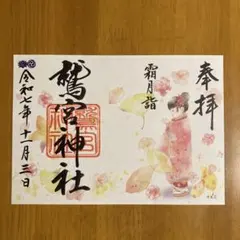 奉拝
霜月詣
鷲宮神社
令和七年十一月三日